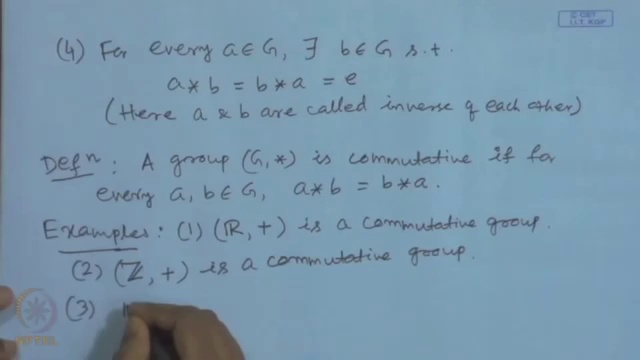 © CET
I.I.T. KGP
(4) For every a ∈ G, ∃ b ∈ G s.t.
a * b = b * a = e
(Here a & b are called inverse of each other)
Defⁿ : A group (G, *) is commutative if for
every a, b ∈ G, a * b = b * a.
Examples : (1) (ℝ, +) is a commutative group.
(2) (ℤ, +) is a commutative group.
(3)
NPTEL